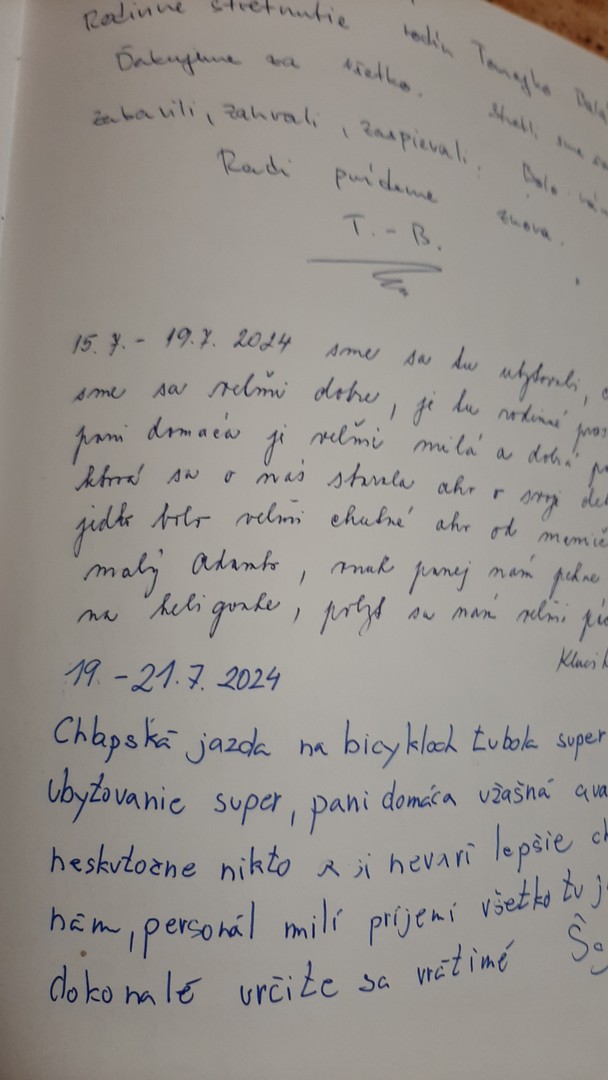 Rodinné stretnutie rodín Tomajko
Ďakujeme za všetko. Stretli sme sa
zabavili, zahrali, zaspievali. Bolo nám
Radi prídeme znova.
T. - B.
15.7. - 19.7. 2024 sme sa tu ubytovali,
sme sa velmi dobre, je tu rodinné
pani domaca je velmi milá a dobrá
ktorá sa o nás starala ako o svoje
jidlo bolo velmi chutné ako od
malý Adamko, vnuk panej nám pekne
na heligonke, pobyt sa nám velmi
19. - 21.7. 2024
Chlapská jazda na bicykloch tubola super
Ubytovanie super, pani domáca užašná
neskutočne nikto a ji nevarí lepšie
nám, personál milí príjemí všetko tu
dokonalé určite sa vrátimé